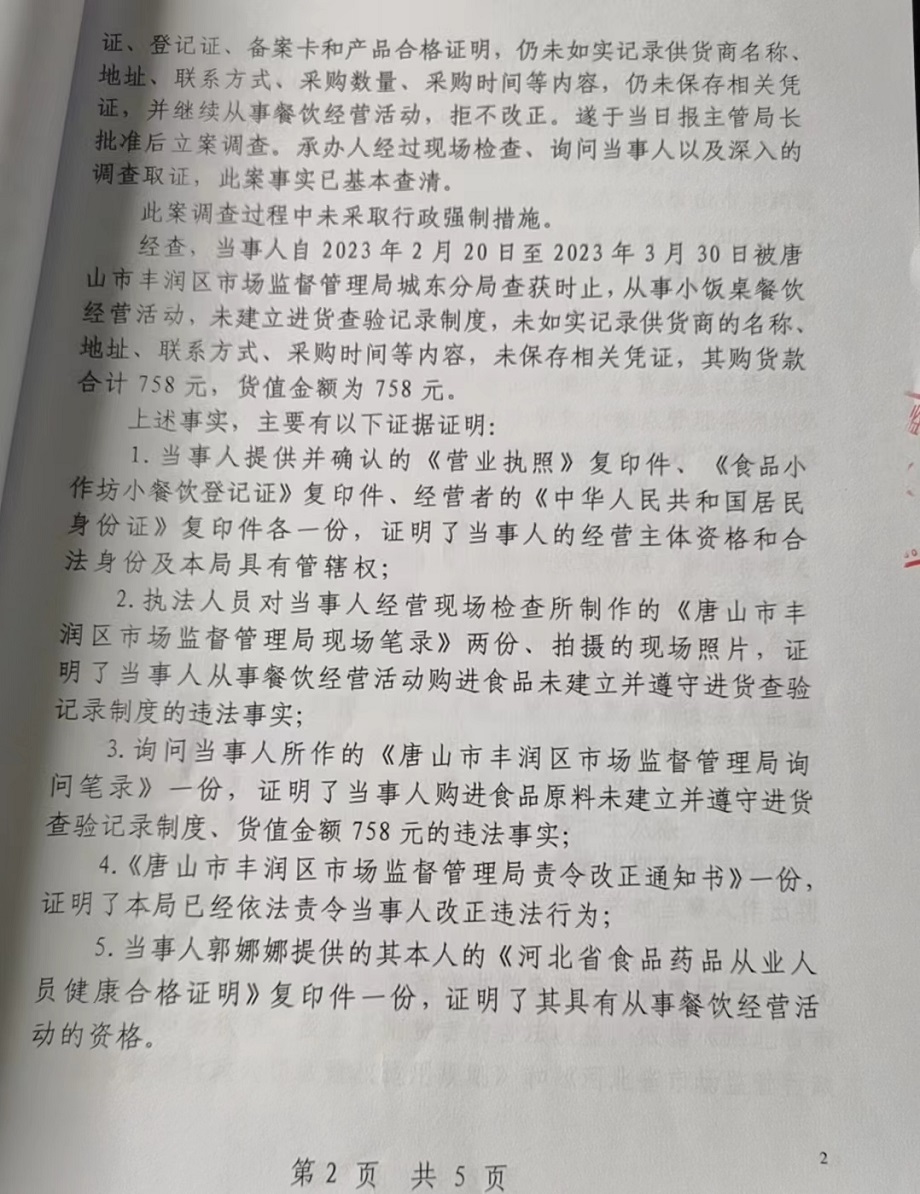 证、登记证、备案卡和产品合格证明，仍未如实记录供货商名称、
地址、联系方式、采购数量、采购时间等内容，仍未保存相关凭
证，并继续从事餐饮经营活动，拒不改正。遂于当日报主管局长
批准后立案调查。承办人经过现场检查、询问当事人以及深入的
调查取证，此案事实已基本查清。
此案调查过程中未采取行政强制措施。
经查，当事人自 2023 年 2 月 20 日至 2023 年 3 月 30 日被唐
山市丰润区市场监督管理局城东分局查获时止，从事小饭桌餐饮
经营活动，未建立进货查验记录制度，未如实记录供货商的名称、
地址、联系方式、采购时间等内容，未保存相关凭证，其购货款
合计 758 元，货值金额为 758 元。
上述事实，主要有以下证据证明：
1. 当事人提供并确认的《营业执照》复印件、《食品小
作坊小餐饮登记证》复印件、经营者的《中华人民共和国居民
身份证》复印件各一份，证明了当事人的经营主体资格和合
法身份及本局具有管辖权；
2. 执法人员对当事人经营现场检查所制作的《唐山市丰
润区市场监督管理局现场笔录》两份、拍摄的现场照片，证
明了当事人从事餐饮经营活动购进食品未建立并遵守进货查验
记录制度的违法事实；
3. 询问当事人所作的《唐山市丰润区市场监督管理局询
问笔录》一份，证明了当事人购进食品原料未建立并遵守进货
查验记录制度、货值金额 758 元的违法事实；
4.《唐山市丰润区市场监督管理局责令改正通知书》一份，
证明了本局已经依法责令当事人改正违法行为；
5. 当事人郭娜娜提供的其本人的《河北省食品药品从业人
员健康合格证明》复印件一份，证明了其具有从事餐饮经营活
动的资格。
2
第 2 页 共 5 页